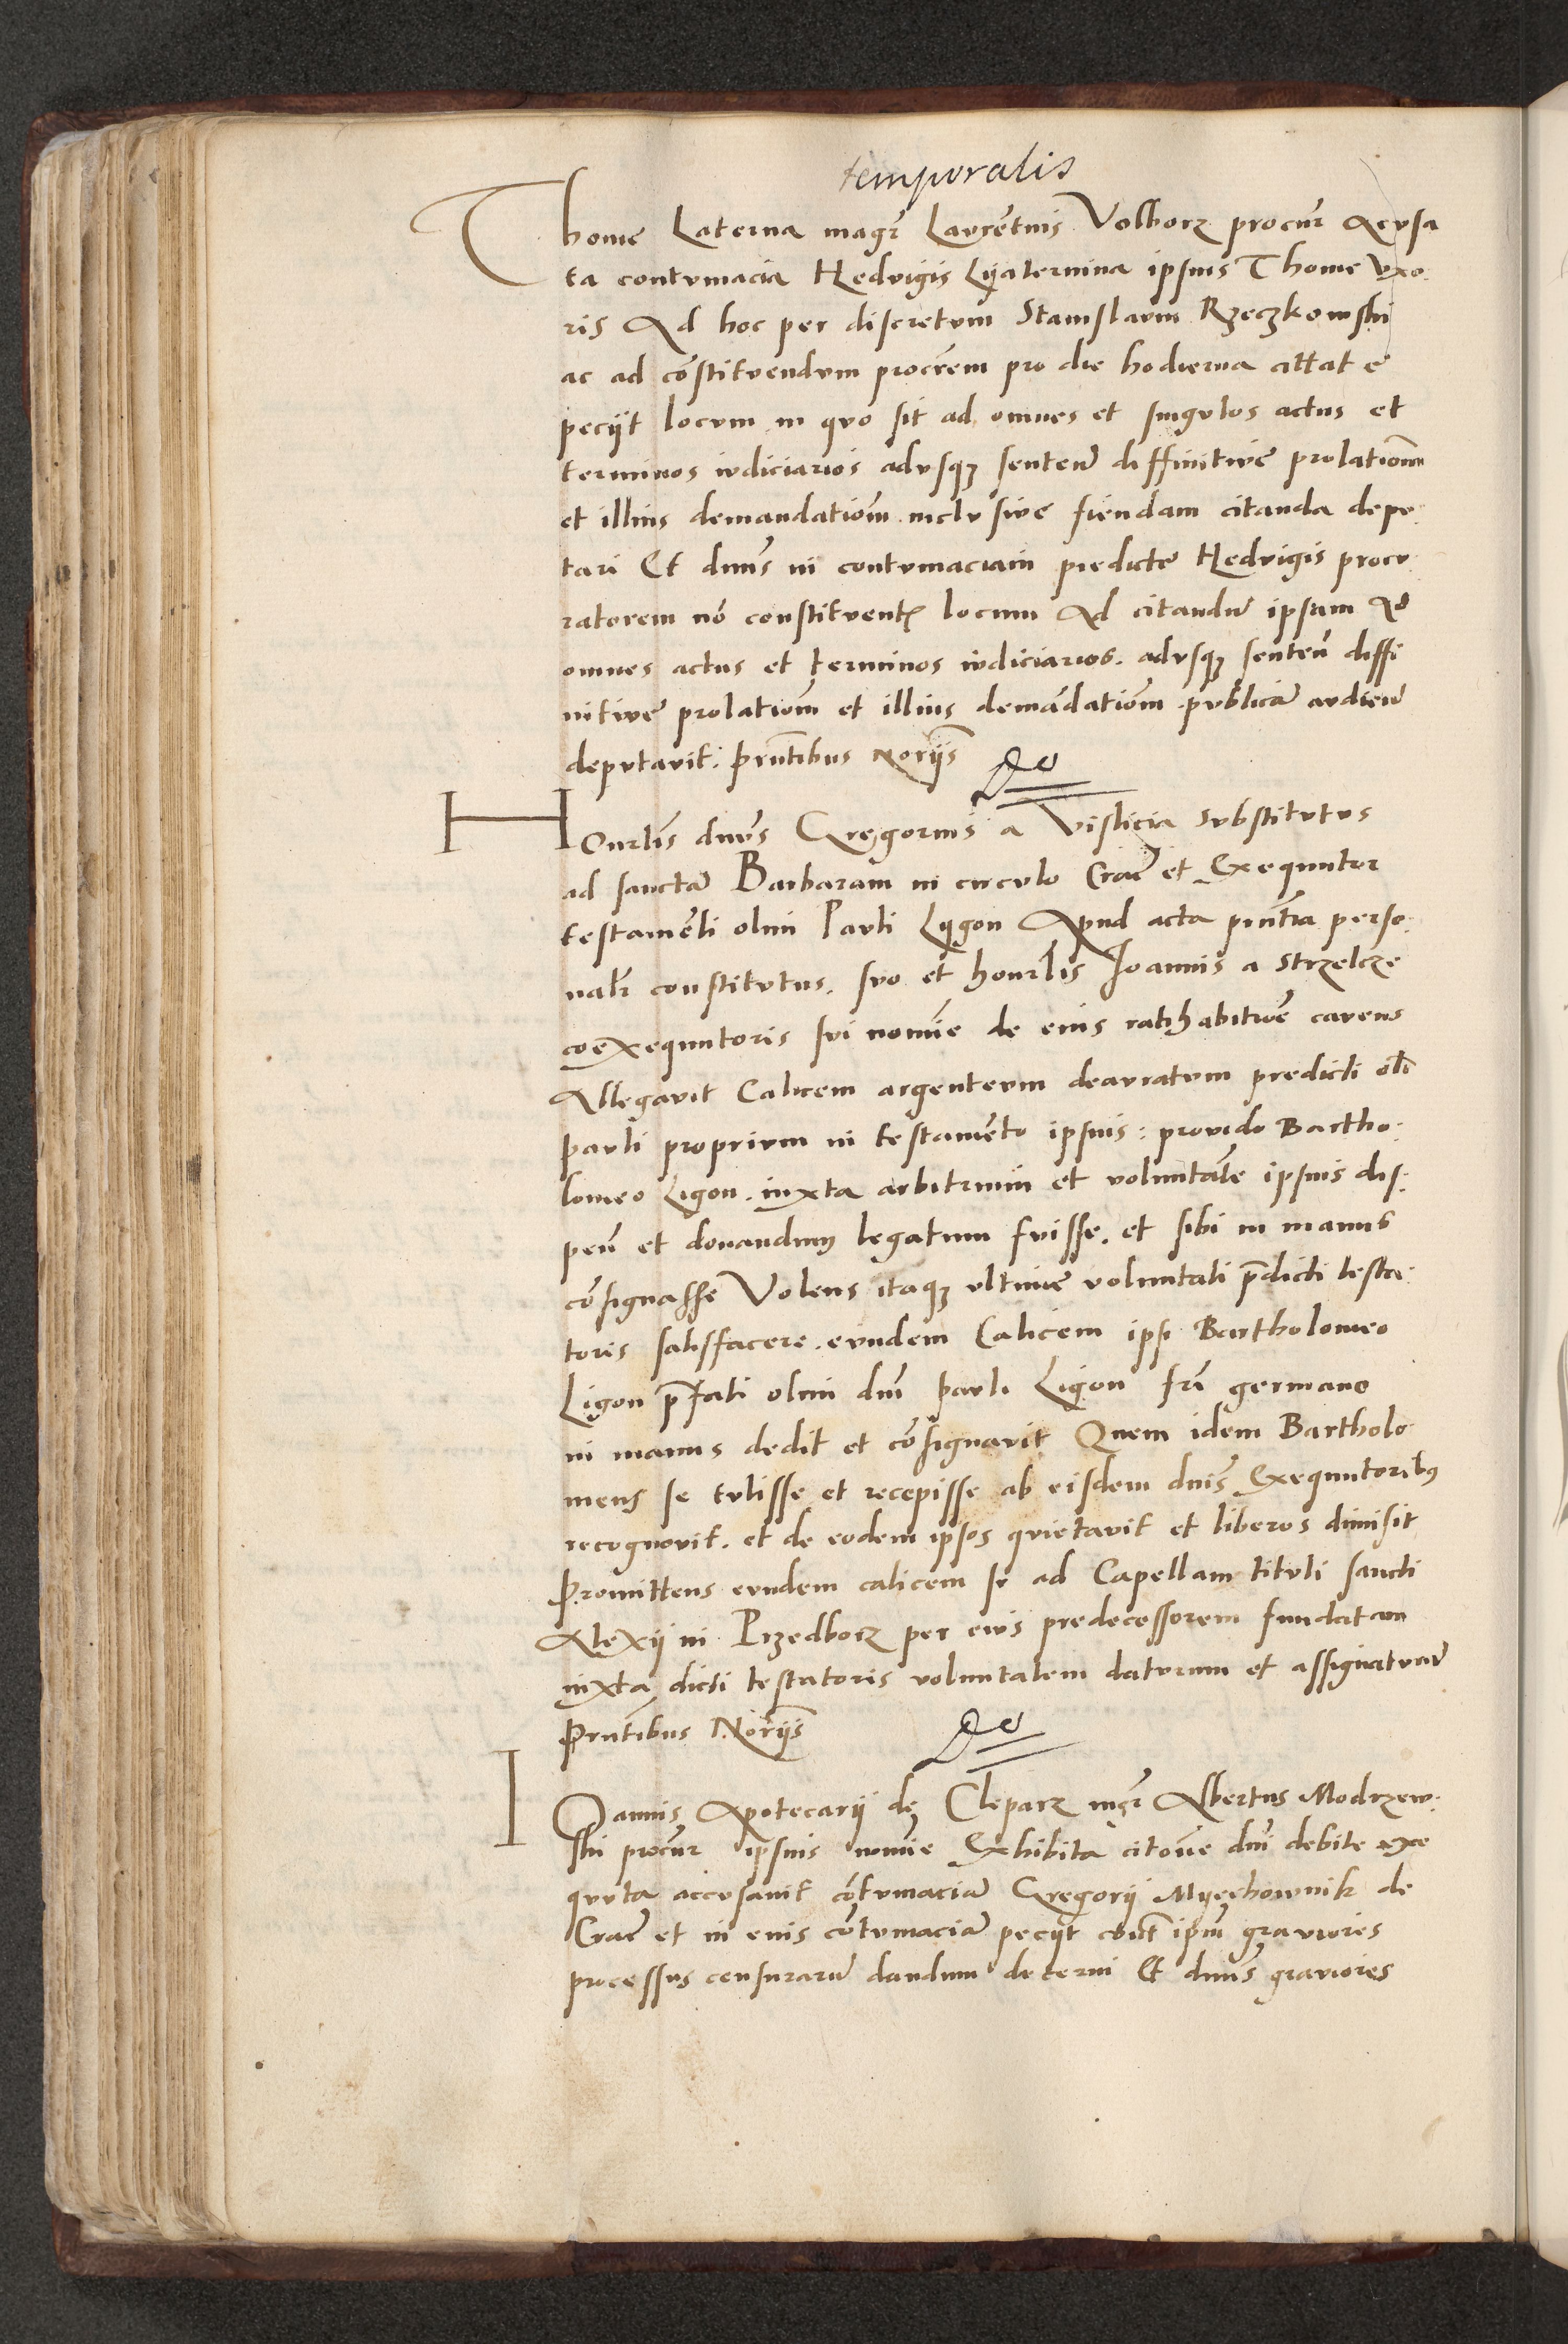 temporalis
Thome Laterna magr̄ Laurēntius Volborz procur̄ accusa
ta contumacia Hedvigis Lyaternina ipsius Thome vxo
ris Ad hoc per discretum Stanislaum Rzeczkowski
ac ad cōstituendum procr̄em pro die hodierna cittate
peciit locum in quo sit ad omnes et singulos actus et
terminos iudiciarios adusq3 senten̄ diffinitiue prolationē
et illius demandationē inclusiue fiendam citanda depu
tari Et dnūs in contumaciam predicte Hedvigis procu
ratorem nō constituentꝭ locum ad citandū ipsam ad
omnes actus et terminos iudiciarios adusq3 senten̄ diffi
nitiue prolationē et illius demādationē publicā audien̄
deputauit: Prntībus Noriis̄
Honrlīs dnūs Gregorius a Vislicia substitutus
ad sanctā Barbaram in circulo Crac̄ et Exequutor
testamēti olim Pauli Lygon Apud acta prntīa perso
nalr̄ constitutus. suo et honrlīs Joannis a Strzelcze
coexequutoris sui nomīe de eius ratihabitiōe cauens
Allegauit Calicem argenteum deauratum predicti olī
Pauli proprium in testamēto ipsius: prouido Bartho:
lomeo Ligon. iuxta arbitrium et voluntātē ipsius dis:
pen̄ et donandum legatum fuisse. et sibi in manus
cōsignasse Volens itaq3 ultime voluntati p̄dicti testa:
toris satisfacere. eundem Calicem ipsi Bartholomeo
Ligon p̄fati olim dnī Pauli Ligon frī germano
in manus dedit et cōsignauit Quem idem Bartholo
meus se tulisse et recepisse ab eisdem dnīs Exequutoribus
recognouit. et de eodem ipsos quietauit et liberos dimisit
Promittens eundem calicem se ad Capellam tituli sancti
Alexii in Przedborz per eius predecessorem fundatam
iuxta dicti testatoris voluntatem daturum et assignaturū
Prntībus Noriis̄
Ioannis Apotecarii de Cleparz mgr̄ Albertus Modrzew:
ski procur̄ ipsius nomīe Exhibita citoīne dnī debite exe
quuta accusauit cōtumaciā Gregorii Myechownik de
Crac̄ et in eius cōtumaciā peciit contr̄ ipm̄ grauiores
processus censurarū dandum decerni Et dnūs grauiores